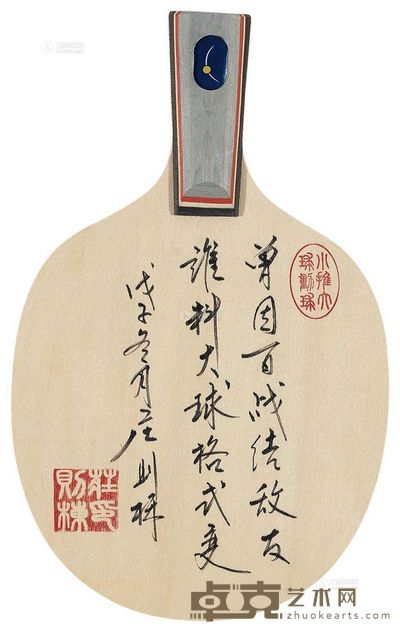 曾因百战结敌友
谁料大球格式变
戊子冬月庄则栋
小推大
球动球
莊印
則棟
卓克艺术网
zhuokearts.com